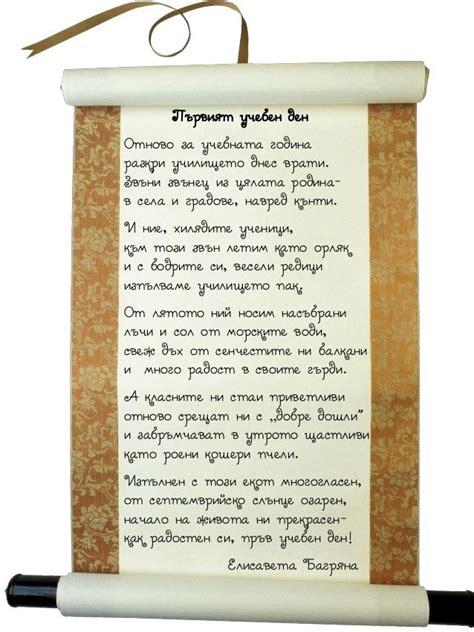 Първият учебен ден
Отново за учебната година
разкри училището днес врати.
Звъни звънец из цялата родина-
в села и градове, навред кънти.
И ние, хилядите ученици,
към този звън летим като орляк
и с бодрите си, весели редици
изпълваме училището пак.
От лятото ний носим насъбрани
лъчи и сол от морските води,
свеж дъх от сенчестите ни балкани
и много радост в своите гърди.
А класните ни стаи приветливи
отново срещат ни с „добре дошли"
и забръмчават в утрото щастливи
като роени кошери пчели.
Изпълнен с този екот многогласен,
от септемврийско слънце огарен,
начало на живота ни прекрасен-
как радостен си, пръв учебен ден!
Елисавета Багряна